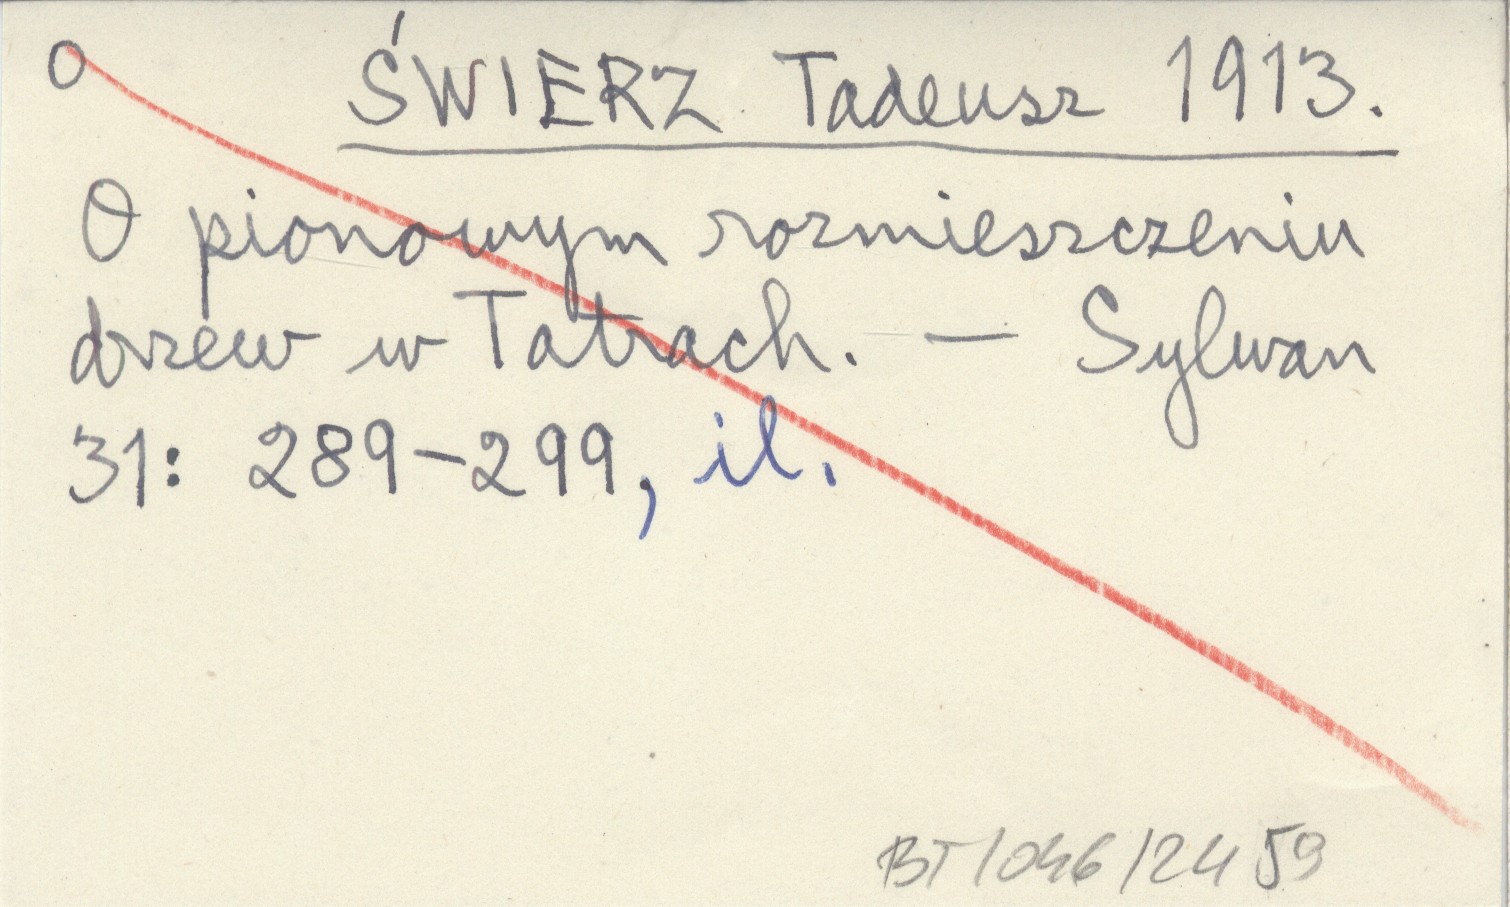 O ŚWIERZ Tadeusz 1913.
O pionowym rozmieszczeniu
drzew w Tatrach. — Sylwan
31: 289-299, il.
BT/046/2459